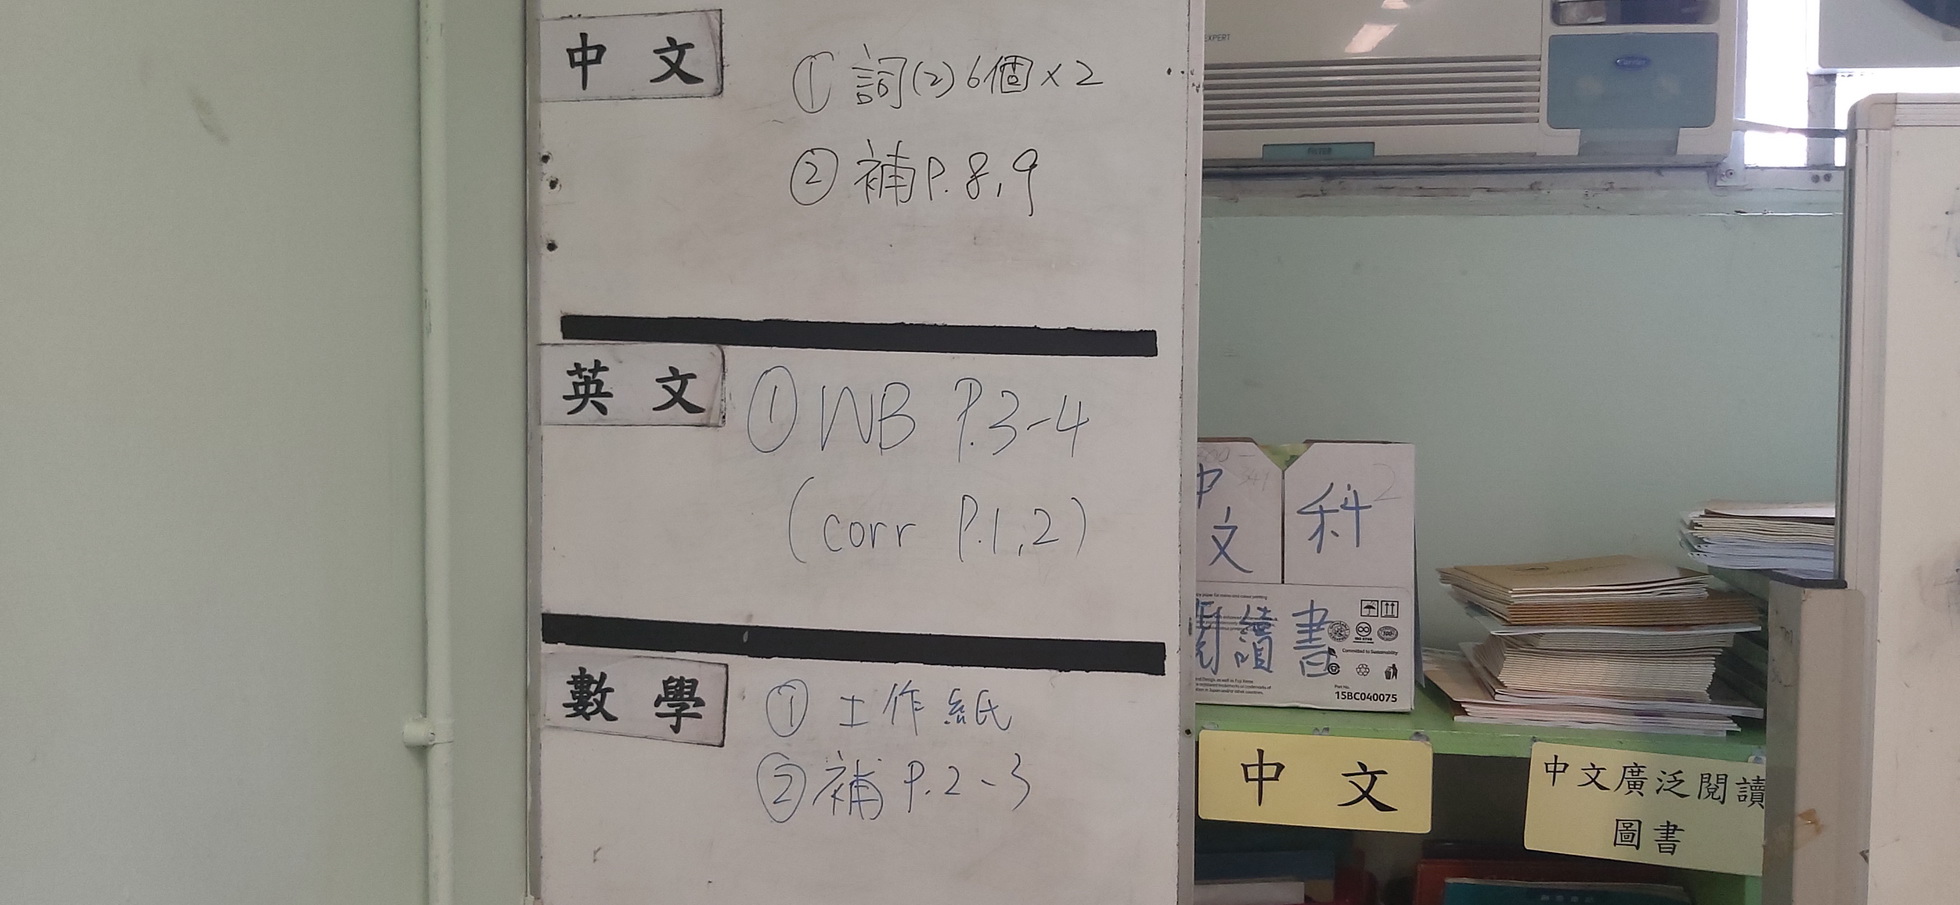 中文
① 詞(2) 6個 x 2
② 補 P.8,9
英文
① WB P.3-4
(corr P.1,2)
數學
① 工作紙
② 補 P.2-3
EXPERT
Carrier
中文
科
閱讀書
Committed to Sustainability
15BC040075
中文
中文廣泛閱讀
圖書